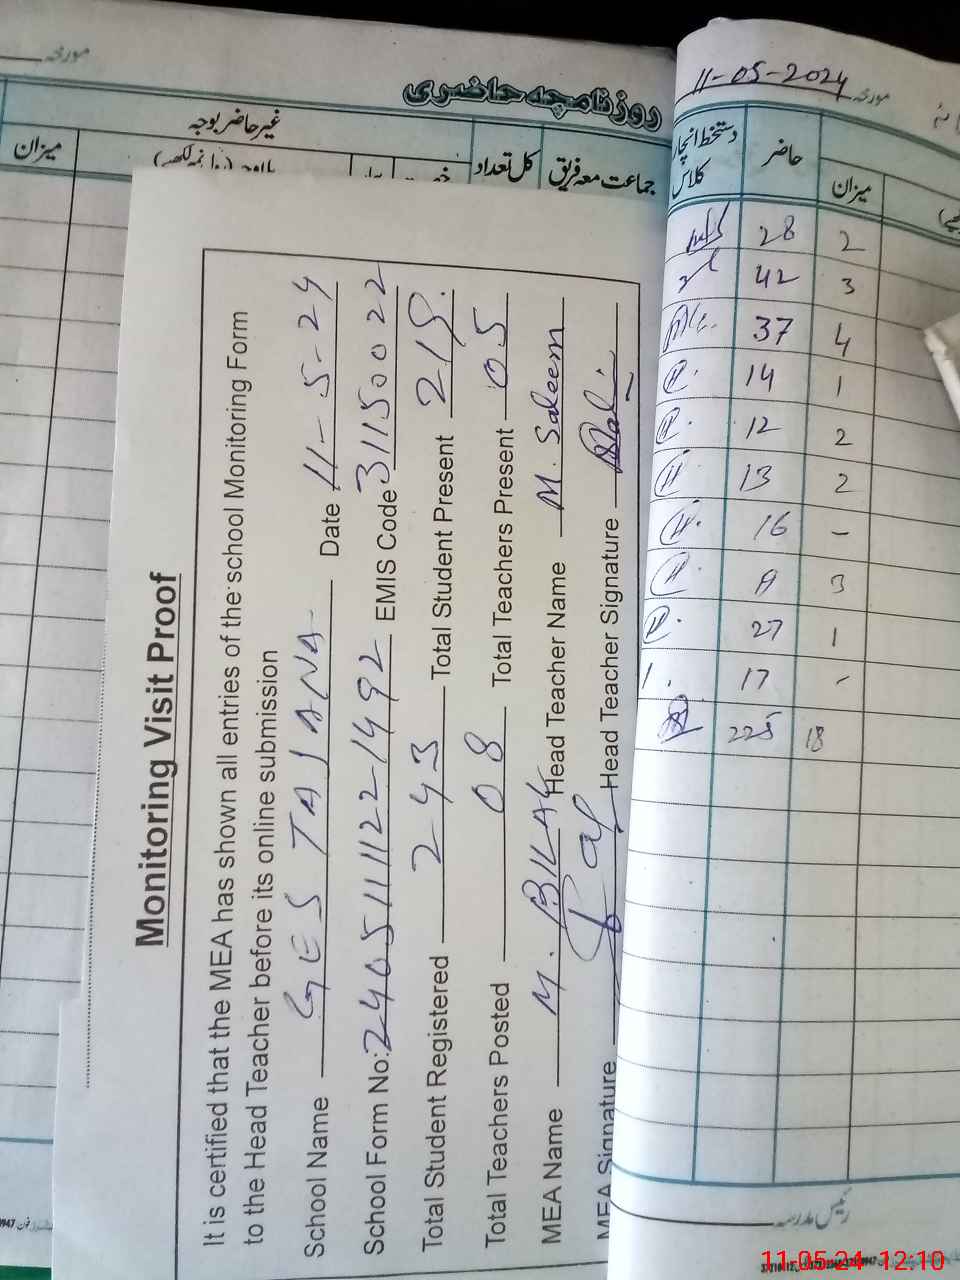 مورخہ
روزنامچہ حاضری
جماعت معہ فریق
کل تعداد
غیر حاضر بوجہ
میزان
Monitoring Visit Proof
It is certified that the MEA has shown all entries of the school Monitoring Form
to the Head Teacher before its online submission
School Name GES TAJANA Date 11-5-24
School Form No: 24051111221492 EMIS Code 31150022
Total Student Registered 243 Total Student Present 219.
Total Teachers Posted 08 Total Teachers Present 05
MEA Name M. BILAL Head Teacher Name M. Saleem
MEA Signature Head Teacher Signature
11-05-2024 مورخہ
دستخط انچارج کلاس حاضر میزان
28 2
42 3
37 4
14 1
12 2
13 2
16 -
3
27 1
17 -
225 18
رئیس مدرسہ
11.05.24 12:10